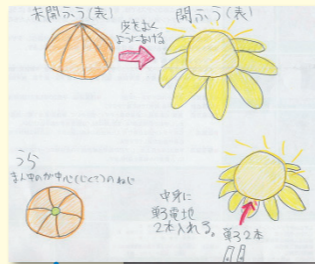 未開ふう(表)
皮をまく
ようにあける
開ふう(表)
うら
まん中のが中心(じくて)のねじ
中身に
単3電地
2本入れる。
単3 2本